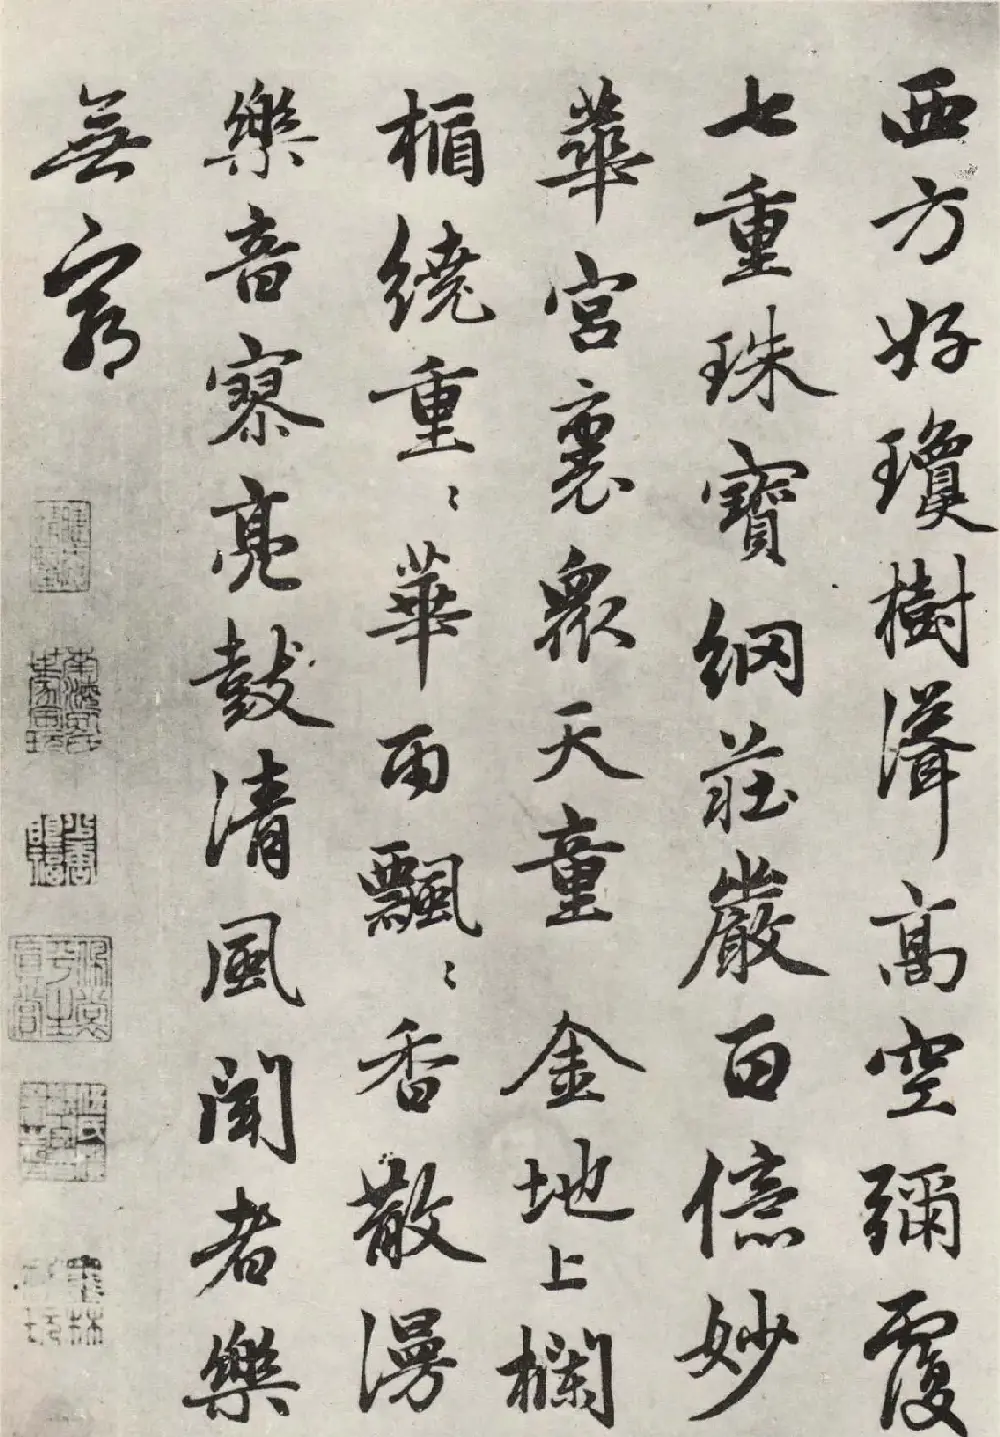 西方好瓊樹聳高空彌覆
七重珠寶網莊嚴百億妙
華宮裏眾天童金地上欄
楯繞重〻華雨飄〻香散漫
樂音寥亮鼓清風聞者樂
無窮